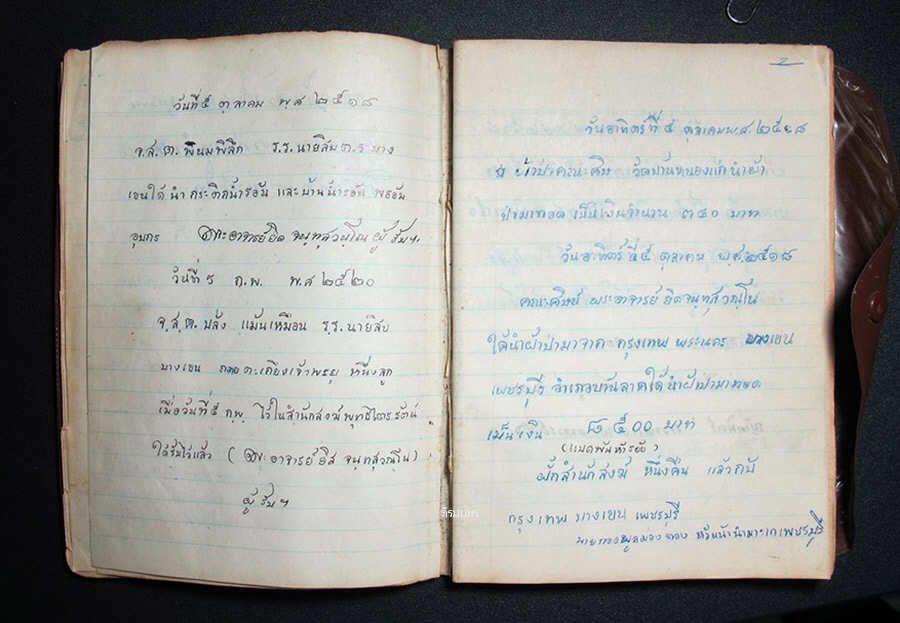 วันที่ ๕ ตุลาคม พ.ศ ๒๕๑๘
จ.ส.ต. พิกพิลึก ร.ร. นายสิบต.ร บาง
เขนได้นำกระติกน้ำร้อน และ
พระอาจารย์ยิด จนฺทสุวณฺโณ ผู้รับฯ
วันที่ ๖ ก.พ. พ.ศ ๒๕๒๐
จ.ส.ต. ปลั่ง แม้นเหมือน ร.ร. นายสิบ
บางเขน ถวายตะเกียงเจ้าพายุ หนึ่งลูก
เมื่อวันที่ ๕ กพ. ไว้ในสำนักสงฆ์พุทธิไตรรัตน์
ได้รับไว้แล้ว (พระอาจารย์ยิด จนฺทสุวณฺโณ)
ผู้รับฯ
๒
วันอาทิตร์ที่ ๕ ตุลาคม พ.ศ. ๒๕๑๘
ผ้าป่าคณะศิษ วัดบ้านหนองแก นำผ้า
ป่ามาทอด เป็นเงินจำนวน ๓๔๐ บาท
วันอาทิตร์ที่ ๕ ตุลาคม พ.ศ. ๒๕๑๘
คณะศิษย์ พระอาจารย์ยิดจนฺทสุวณฺโณ
ได้นำผ้าป่ามาจาก กรุงเทพ พระนคร บางเขน
เพชรบุรี อำเภอบ้านลาดได้นำผ้าป่ามาทอด
เป็นเงิน ๘๕๐๐ บาท
(แปดพันห้าร้อย)
พักสำนักสงฆ์ หนึ่งคืน แล้วกลับ
กรุงเทพ บางเขน เพชรบุรี
หัวหน้านำมาจากเพชรบุรี
ภิรมย์พร